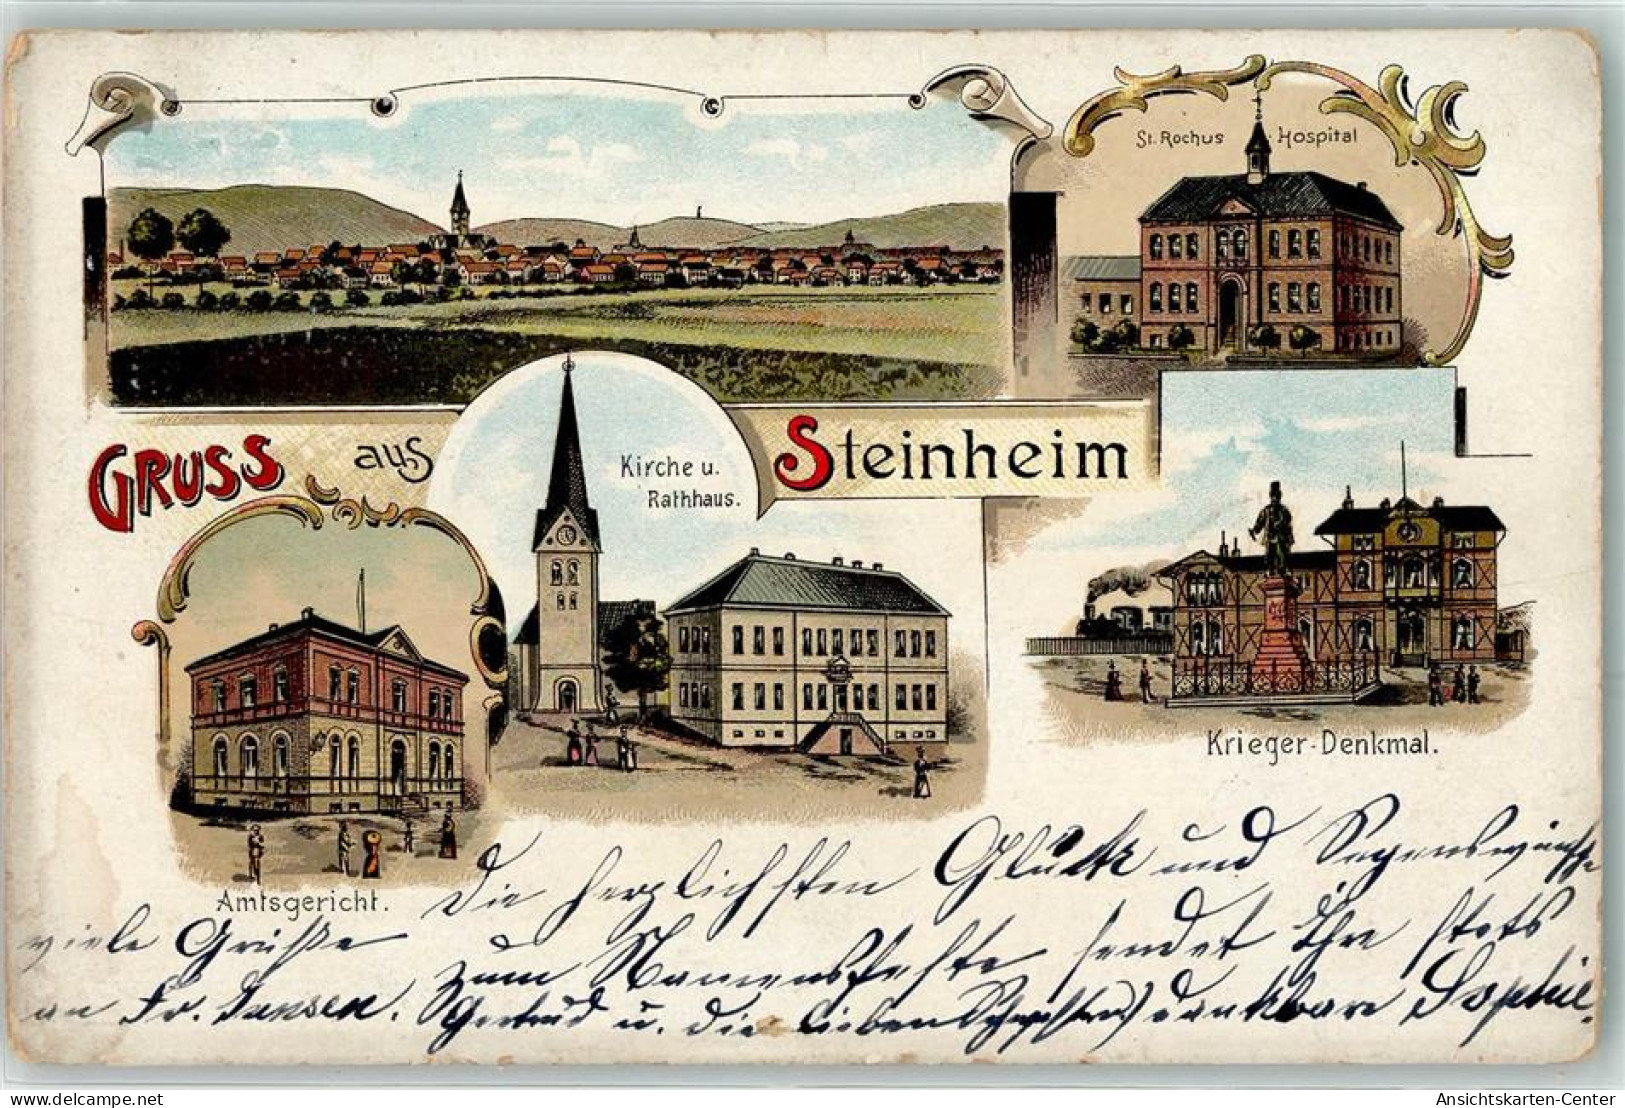 St. Rochus Hospital
Gruss aus Steinheim
Kirche u.
Rathhaus.
Krieger-Denkmal.
Amtsgericht.
Die herzlichsten Glück und Segenswünsche
zum Namensfeste sendet Ihre stets
dankbare Sophie.
viele Grüße
an Fr. Jansen.
Gertrud u. die lieben Schwestern)
delcampe.net
Ansichtskarten-Center